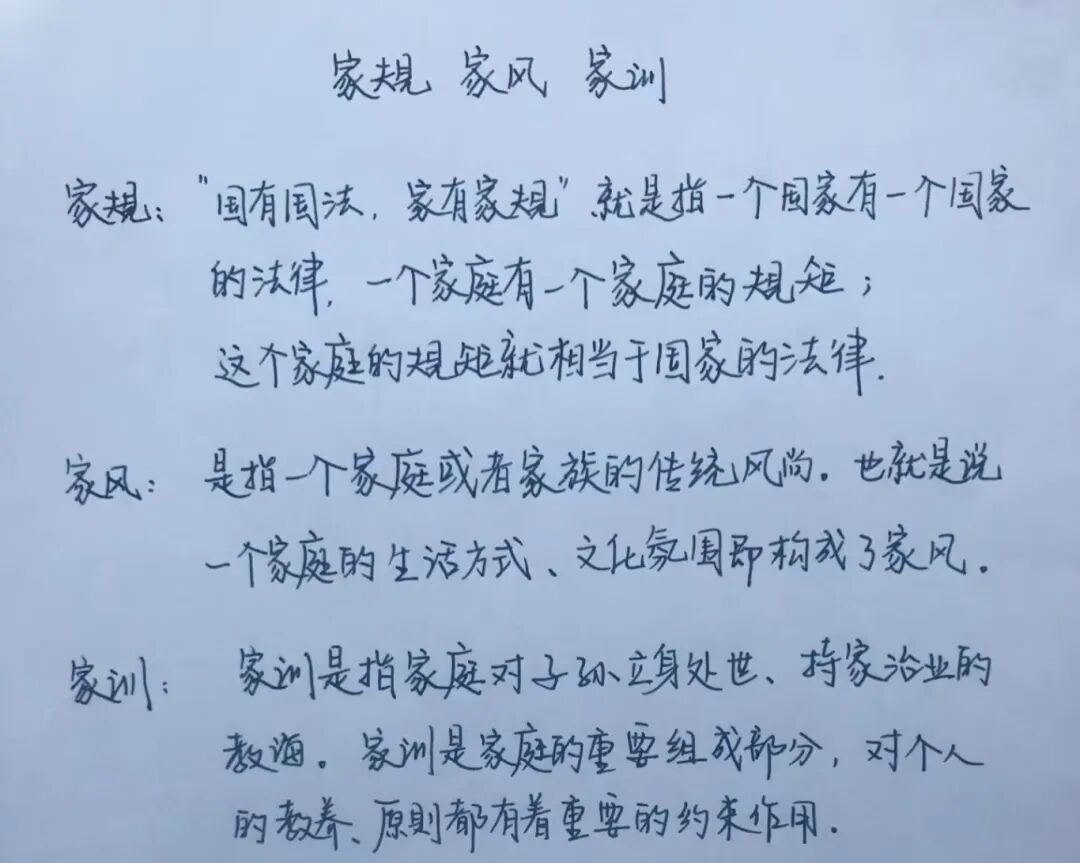 家规 家风 家训
家规："国有国法，家有家规"就是指一个国家有一个国家
的法律，一个家庭有一个家庭的规矩；
这个家庭的规矩就相当于国家的法律.
家风：是指一个家庭或者家族的传统风尚。也就是说
一个家庭的生活方式、文化氛围即构成了家风。
家训：家训是指家庭对子孙立身处世、持家治业的
教诲。家训是家庭的重要组成部分，对个人
的教养、原则都有着重要的约束作用.